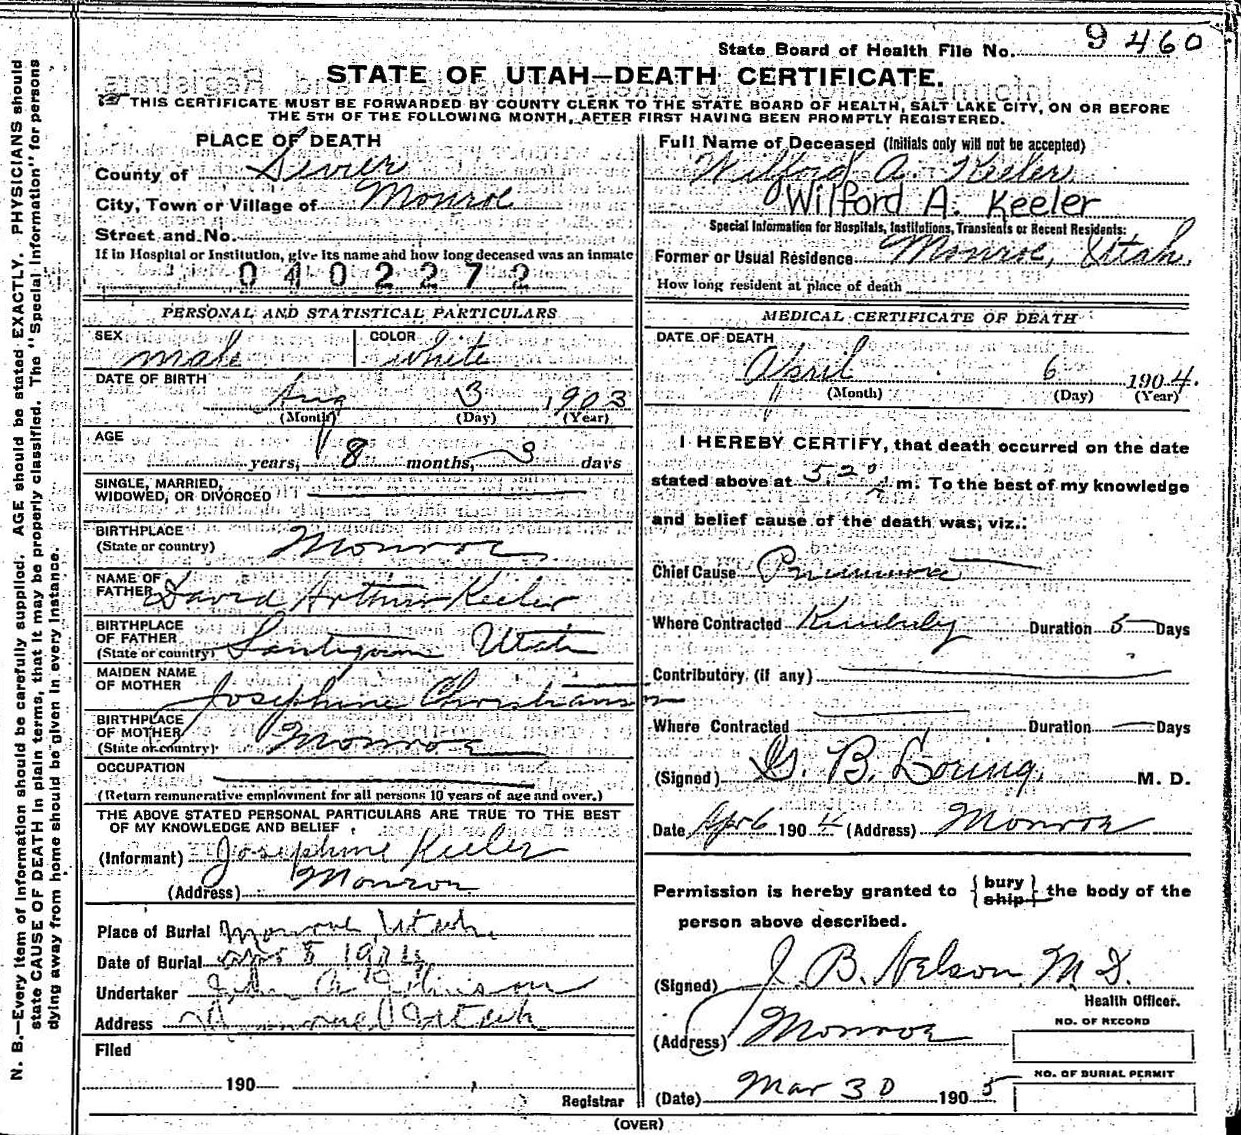 State Board of Health File No. 9 460
STATE OF UTAH—DEATH CERTIFICATE.
THIS CERTIFICATE MUST BE FORWARDED BY COUNTY CLERK TO THE STATE BOARD OF HEALTH, SALT LAKE CITY, ON OR BEFORE
THE 5TH OF THE FOLLOWING MONTH, AFTER FIRST HAVING BEEN PROMPTLY REGISTERED.
PLACE OF DEATH
County of Sevier
City, Town or Village of Monroe
Street and No.
If in Hospital or Institution, give its name and how long deceased was an inmate
0402272
PERSONAL AND STATISTICAL PARTICULARS
SEX male COLOR white
DATE OF BIRTH
Aug 3 1903
(Month) (Day) (Year)
AGE
years, 8 months, 3 days
SINGLE, MARRIED,
WIDOWED, OR DIVORCED
BIRTHPLACE
(State or country) Monroe
NAME OF
FATHER David Arthur Keeler
BIRTHPLACE
OF FATHER
(State or country) Utah
MAIDEN NAME
OF MOTHER Josephine Christianson
BIRTHPLACE
OF MOTHER
(State or country) Monroe
OCCUPATION
(Return remunerative employment for all persons 10 years of age and over.)
THE ABOVE STATED PERSONAL PARTICULARS ARE TRUE TO THE BEST
OF MY KNOWLEDGE AND BELIEF
(Informant) Josephine Keeler
(Address) Monroe
Place of Burial Monroe Utah
Date of Burial Apr 8 1904
Undertaker John A
Address Monroe Utah
Filed
190
Registrar
Full Name of Deceased (Initials only will not be accepted)
Wilford A. Keeler
Wilford A. Keeler
Special Information for Hospitals, Institutions, Transients or Recent Residents:
Former or Usual Residence Monroe, Utah.
How long resident at place of death
MEDICAL CERTIFICATE OF DEATH
DATE OF DEATH
April 6 1904.
(Month) (Day) (Year)
I HEREBY CERTIFY, that death occurred on the date
stated above at 5.20 m. To the best of my knowledge
and belief cause of the death was, viz.:
Chief Cause Pneumonia
Where Contracted Kimberly Duration 5 Days
Contributory (if any)
Where Contracted Duration Days
(Signed) G. B. Loring. M. D.
Date Apr 6 1904 (Address) Monroe
Permission is hereby granted to {bury ship} the body of the
person above described.
(Signed) J. B. Nelson M D.
Health Officer.
(Address) Monroe
NO. OF RECORD
NO. OF BURIAL PERMIT
(Date) Mar 30 1905
(OVER)
N. B.—Every item of information should be carefully supplied. AGE should be stated EXACTLY. PHYSICIANS should
state CAUSE OF DEATH in plain terms, that it may be properly classified. The "Special Information" for persons
dying away from home should be given in every instance.